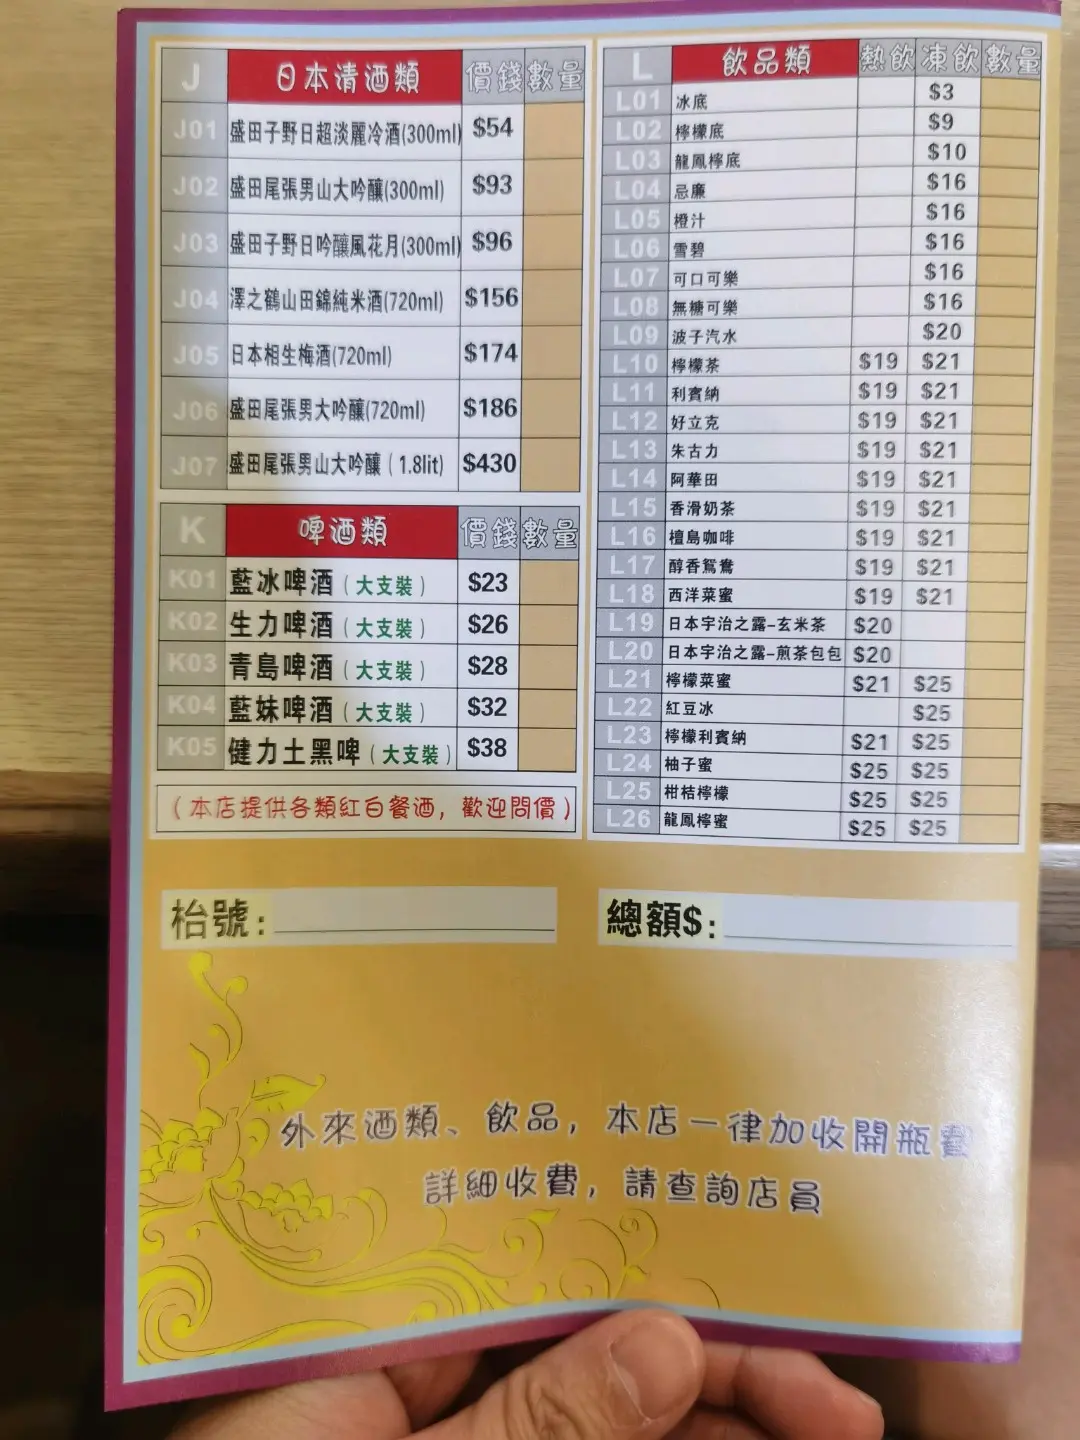 J 日本清酒類 價錢 數量
J01 盛田子野日超淡麗冷酒(300ml) $54
J02 盛田尾張男山大吟釀(300ml) $93
J03 盛田子野日吟釀風花月(300ml) $96
J04 澤之鶴山田錦純米酒(720ml) $156
J05 日本相生梅酒(720ml) $174
J06 盛田尾張男大吟釀(720ml) $186
J07 盛田尾張男山大吟釀(1.8lit) $430
K 啤酒類 價錢 數量
K01 藍冰啤酒(大支裝) $23
K02 生力啤酒(大支裝) $26
K03 青島啤酒(大支裝) $28
K04 藍妹啤酒(大支裝) $32
K05 健力士黑啤(大支裝) $38
(本店提供各類紅白餐酒，歡迎問價)
L 飲品類 熱飲 凍飲 數量
L01 冰底 $3
L02 檸檬底 $9
L03 龍鳳檸底 $10
L04 忌廉 $16
L05 橙汁 $16
L06 雪碧 $16
L07 可口可樂 $16
L08 無糖可樂 $16
L09 波子汽水 $20
L10 檸檬茶 $19 $21
L11 利賓納 $19 $21
L12 好立克 $19 $21
L13 朱古力 $19 $21
L14 阿華田 $19 $21
L15 香滑奶茶 $19 $21
L16 檀島咖啡 $19 $21
L17 醇香鴛鴦 $19 $21
L18 西洋菜蜜 $19 $21
L19 日本宇治之露–玄米茶 $20
L20 日本宇治之露–煎茶包包 $20
L21 檸檬菜蜜 $21 $25
L22 紅豆冰 $25
L23 檸檬利賓納 $21 $25
L24 柚子蜜 $25 $25
L25 柑桔檸檬 $25 $25
L26 龍鳳檸蜜 $25 $25
枱號:
總額$:
外來酒類、飲品，本店一律加收開瓶費
詳細收費，請查詢店員